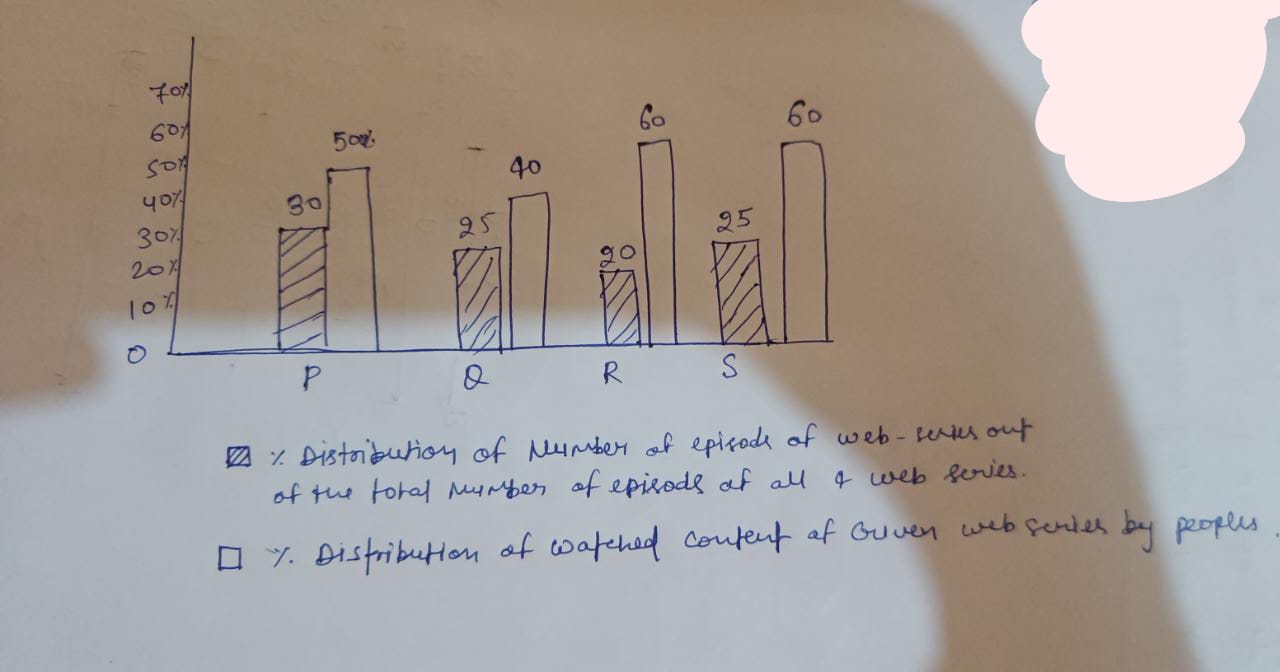 70%
60%
50%
40%
30%
20%
10%
0
30
50%
25
40
20
60
25
60
P
Q
R
S
% Distribution of Number of episode of web-series out
of the total Number of episods of all 4 web series.
% Distribution of watched content of Given web series by peoples.